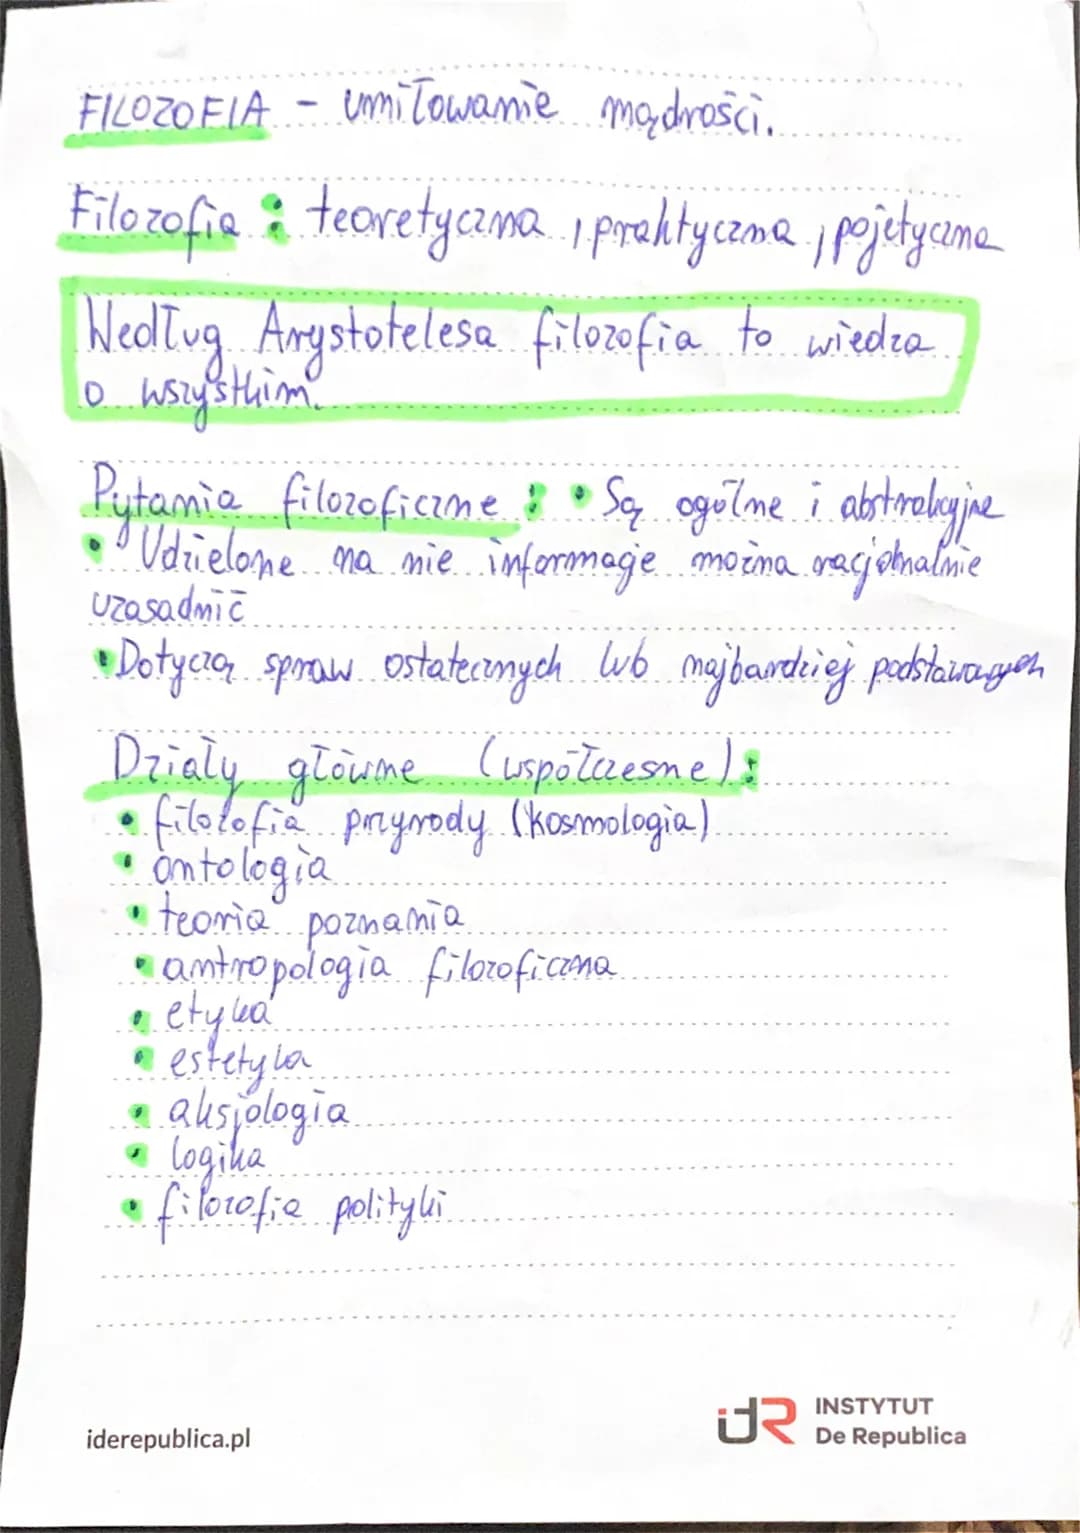 FILOZOFIA - umiłowanie mądrości.
Filozofia: teoretyczna, praktyczna, pojetyczna
Według Arystotelesa filozofia to wiedza
o wszystkim.
Pytania filozoficzne: • Są ogólne i abstrakcyjne
• Udzielone na nie informacje można racjonalnie
uzasadnić
• Dotyczą spraw ostatecznych lub najbardziej podstawowych
Działy główne (współczesne):
• filozofia przyrody (kosmologia)
• ontologia
• teoria poznania
• antropologia filozoficzna
• etyka
• estetyka
• aksjologia
• logika
• filozofia polityki
iderepublica.pl
idR INSTYTUT
De Republica